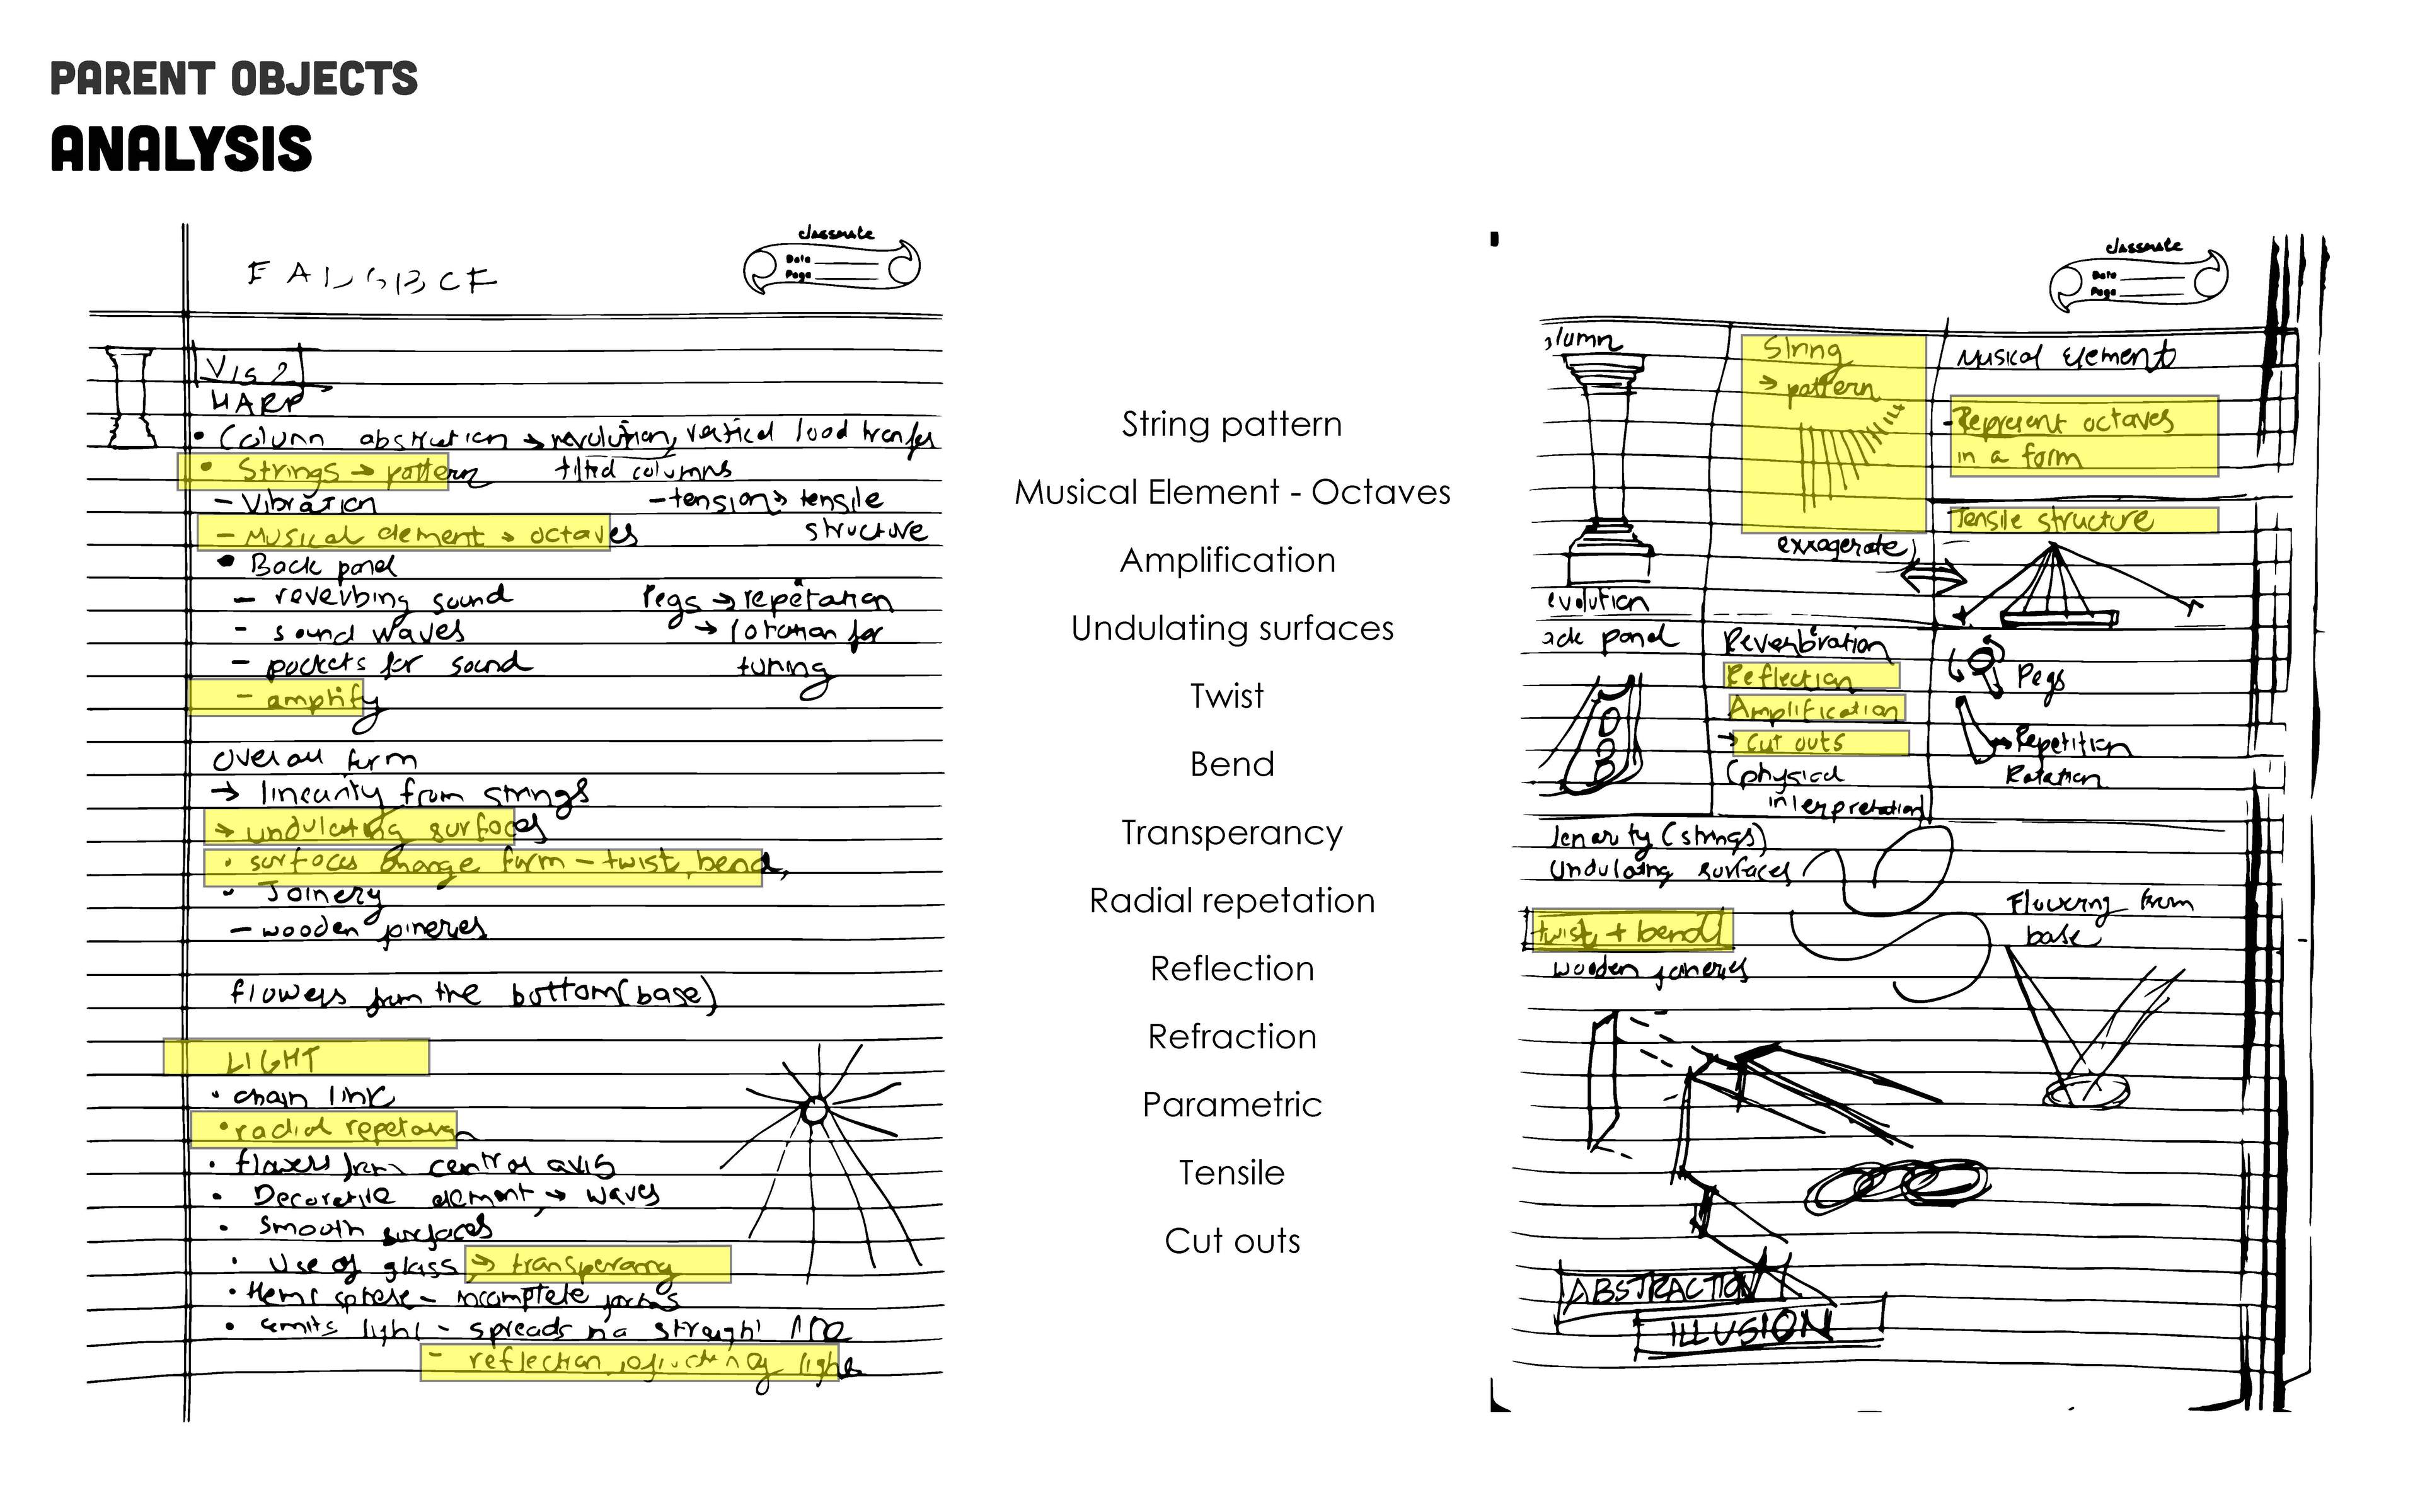 PARENT OBJECTS
ANALYSIS
classmate
Date
Page
Vis 2
HARP
• Column abstraction → revolution, vertical load transfer
• Strings → pattern tilted columns
- Vibration - tension → tensile
- Musical element → octaves structure
• Back panel
- reverbing sound Pegs → repetation
- sound waves → rotation for
- pockets for sound tuning
- amplify
Overall form
→ linearity from strings
→ undulating surfaces
• surfaces change form - twist, bend,
• Joinery
- wooden
flowers from the bottom (base)
LIGHT
• chain link
• radial repetation
• flowers from central axis
• Decorative element → waves
• Smooth surfaces
• Use of glass → transperancy
• Hemi sphere - incomplete
• emits light - spreads in a straight line
- reflection, light
String pattern
Musical Element - Octaves
Amplification
Undulating surfaces
Twist
Bend
Transperancy
Radial repetation
Reflection
Refraction
Parametric
Tensile
Cut outs
classmate
Date
Page
olumn
String
→ pattern
exxagerate
Musical Element
- Represent octaves
in a form
Tensile structure
evolution
ack panel
Reverbration
Reflection
Amplification
→ Cut outs
(physical
interpretation)
Pegs
→ Repetition
Rotation
(strings)
Undulating surfaces
twist + bend
wooden
Flowering from
base
ABSTRACTION
ILLUSION